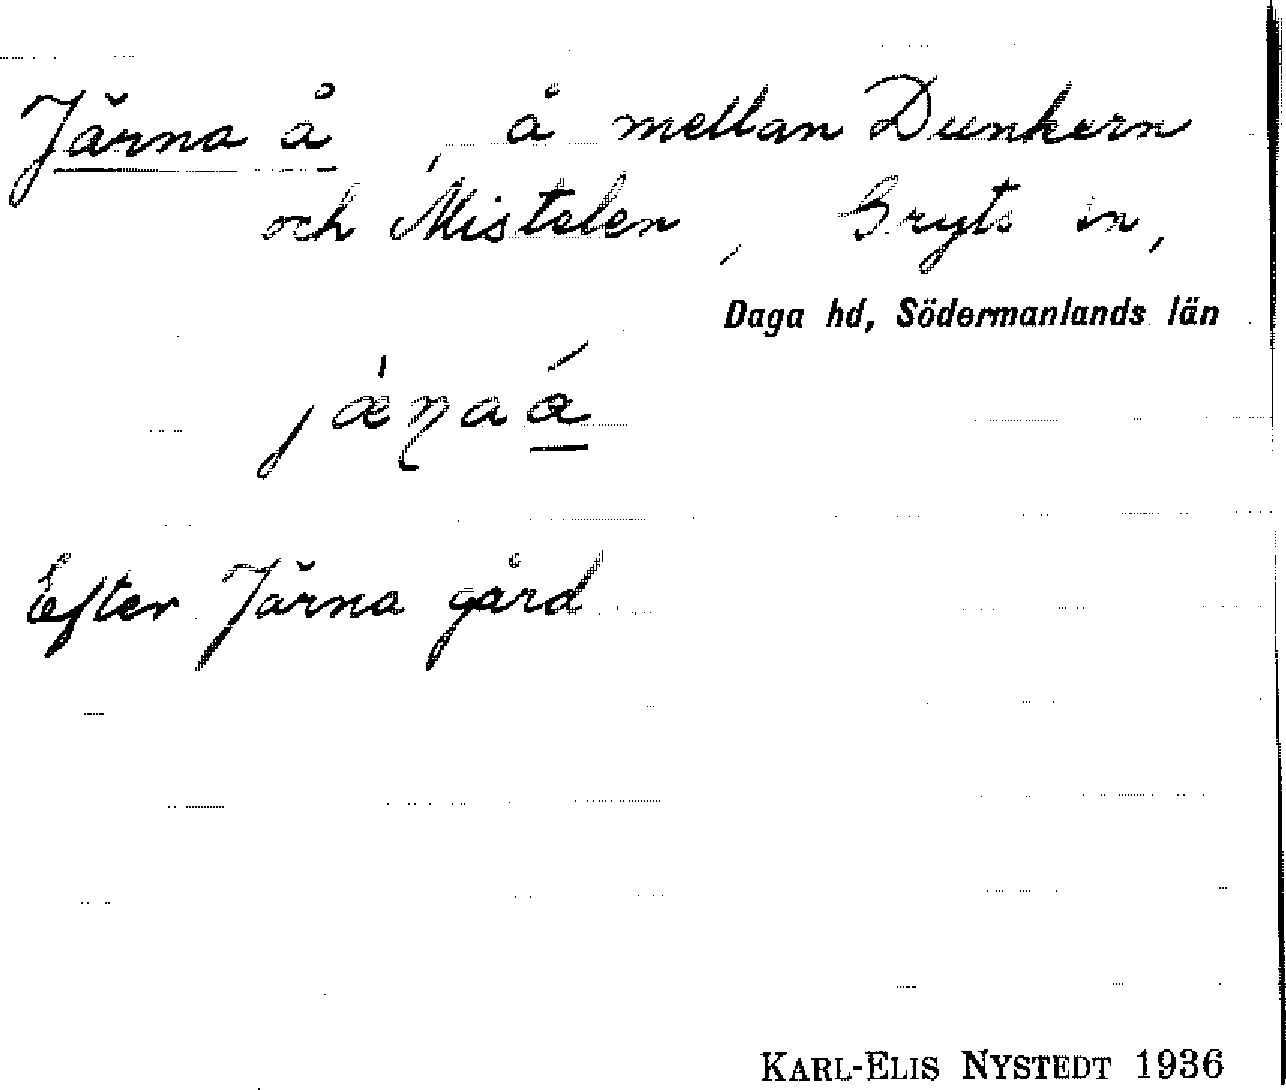 Järna å, å mellan Dunkern
och Mistelen, Gryts sn,
Daga hd, Södermanlands län
jæɳaá
Efter Järna gård
KARL-ELIS NYSTEDT 1936